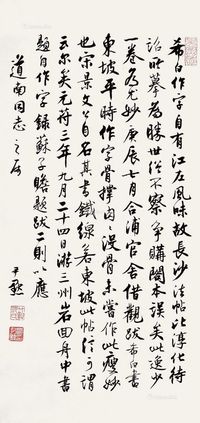 希白作字自有江左風味故長沙法帖比淳化待
詔所摹為勝世俗不察爭購閣本誤矣此逸少
一卷為尤妙庚辰七月合浦官舍借觀跋希白書
東坡平時作字骨撐肉〻沒骨未嘗作此瘦妙
也宋景文公自名其書鐵線若東坡此帖信可謂
云爾矣元符三年九月二十四日游三州岩回舟中書
題自作字錄蘇子瞻題跋二則以應
道南同志之屬
尹默